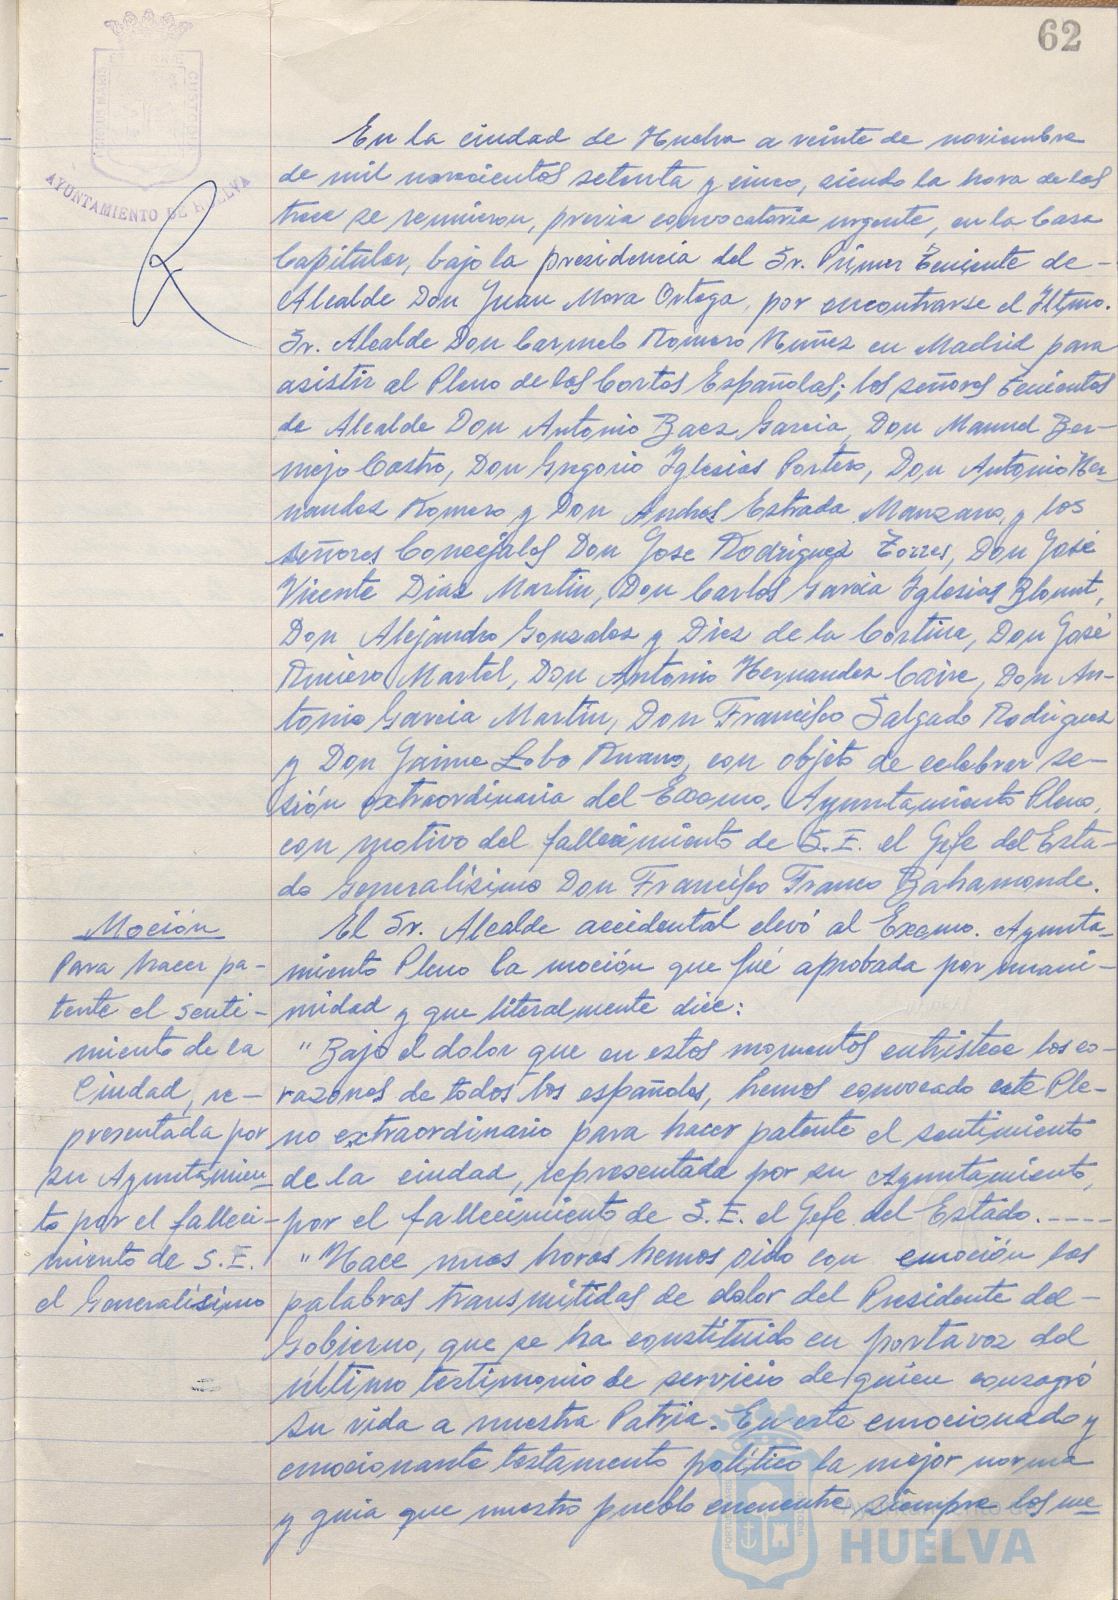 62
PORTUS MARIS ET TERRAE CUSTODIA
AYUNTAMIENTO DE HUELVA
En la ciudad de Huelva a veinte de noviembre
de mil novecientos setenta y cinco, siendo la hora de las
trece se reunieron, previa convocatoria urgente, en la Casa
Capitular, bajo la presidencia del Sr. Primer Teniente de-
Alcalde Don Juan Mora Ortega, por encontrarse el Iltmo.
Sr. Alcalde Don Carmelo Romero Nuñez en Madrid para
asistir al Pleno de las Cortes Españolas; los señores Tenientes
de Alcalde Don Antonio Baez Garcia, Don Manuel Ber-
mejo Castro, Don Gregorio Iglesias Portero, Don Antonio Her-
nandez Romero y Don Andres Estrada Manzano, y los
señores Concejales Don Jose Rodriguez Torres, Don José
Vicente Diaz Martin, Don Carlos Garcia Iglesias Blount,
Don Alejandro Gonzalez y Diez de la Cortina, Don José
Riviero Martel, Don Antonio Hernandez Caire, Don An-
tonio Garcia Martin, Don Francisco Salgado Rodriguez
y Don Jaime Lobo Ruano, con objeto de celebrar se-
sión extraordinaria del Excmo. Ayuntamiento Pleno,
con motivo del fallecimiento de S.E. el Gefe del Esta-
do Generalísimo Don Francisco Franco Bahamonde.
Moción
Para hacer pa-
tente el senti-
miento de la
Ciudad, re-
presentada por
su Ayuntamien-
to por el falleci-
miento de S.E.
el Generalísimo
El Sr. Alcalde accidental elevó al Excmo. Ayunta-
miento Pleno la moción que fué aprobada por unani-
midad y que literalmente dice:
"Bajo el dolor que en estos momentos entristece los co-
razones de todos los españoles, hemos convocado este Ple-
no extraordinario para hacer patente el sentimiento
de la ciudad, representada por su Ayuntamiento,
por el fallecimiento de S.E. el Gefe del Estado.----
"Hace unas horas hemos oido con emoción las
palabras transmitidas de dolor del Presidente del-
Gobierno, que se ha constituido en portavoz del
último testimonio de servicio de quien consagró
su vida a nuestra Patria. En este emocionado y
emocionante testamento político la mejor norma
y guia que nuestro pueblo encuentre siempre los me-
Ayuntamiento de
HUELVA